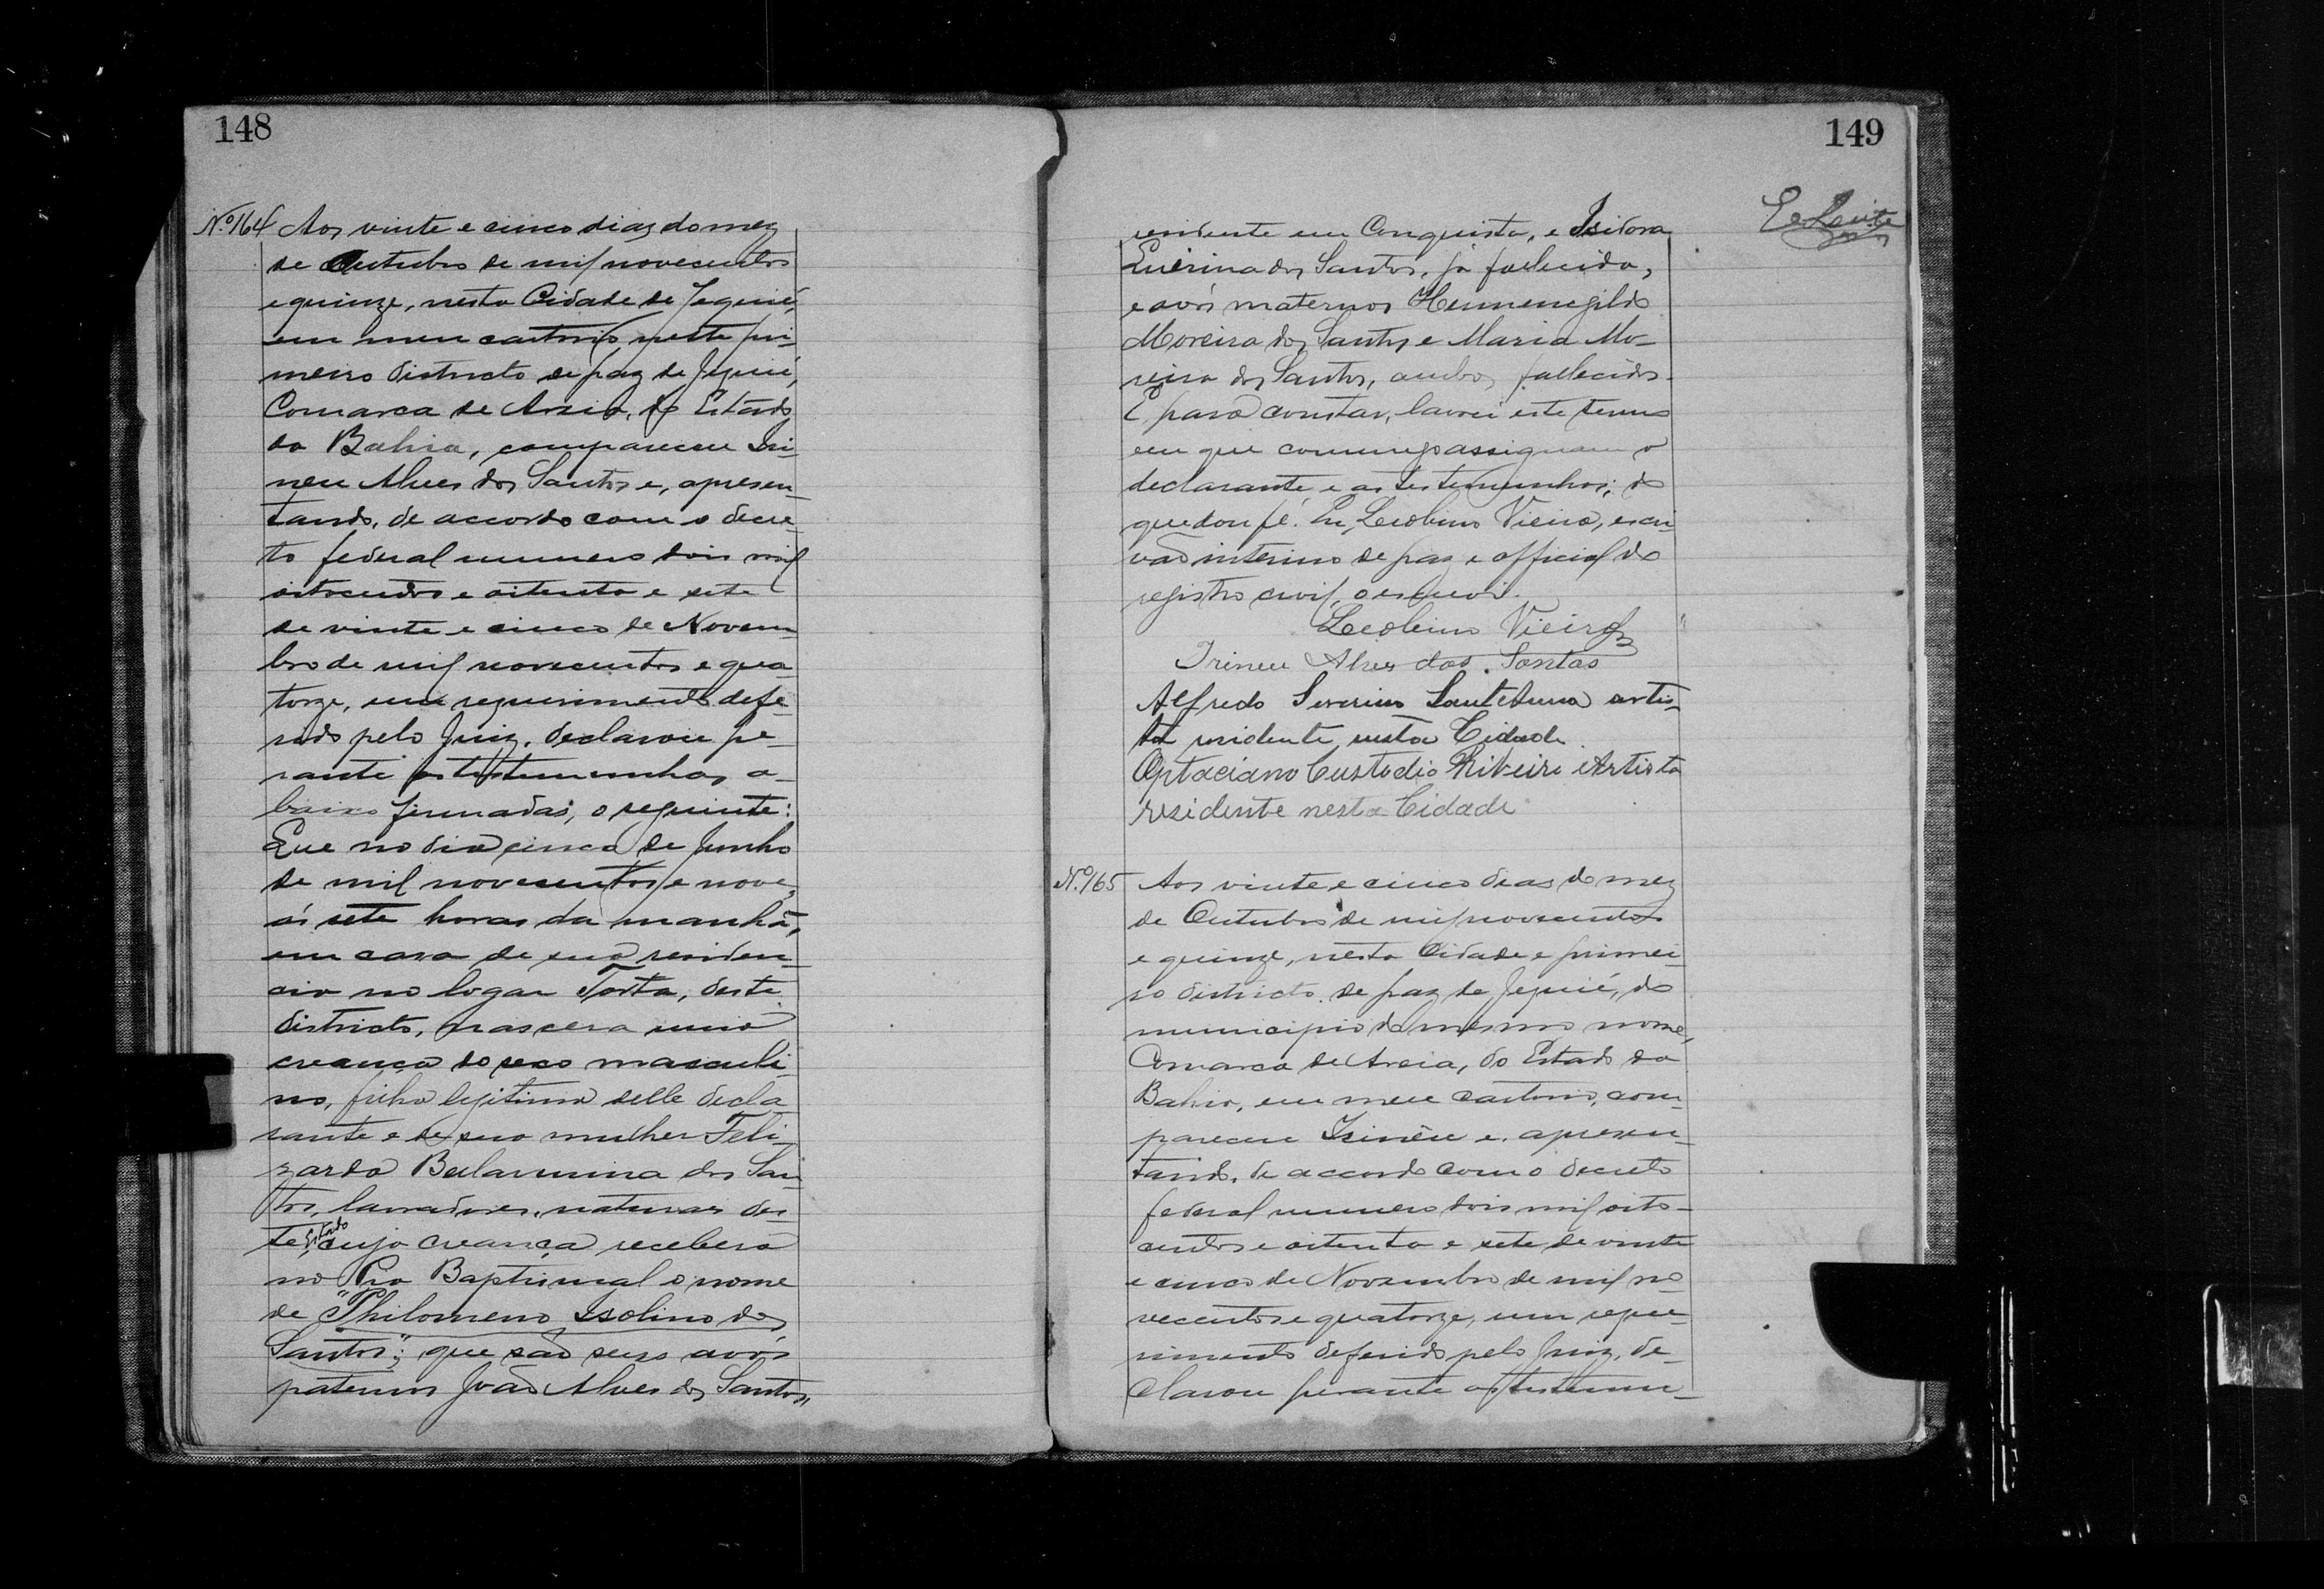 148
Nº 164 Aos vinte e cinco dias do mez
de Outubro de mil novecentos
e quinze, nesta Cidade de Jequié,
em meu cartorio neste pri-
meiro districto de paz de Jequié,
Comarca de Areia, do Estado
da Bahia, compareceu Iri-
neu Alves dos Santos e, apresen-
tando, de accordo com o decre-
to federal numero dois mil
oitocentos e oitenta e sete
de vinte e cinco de Novem-
bro de mil novecentos e qua-
torze, um requerimento defe-
rido pelo Juiz, declarou pe-
rante as testemunhas a-
baixo firmadas, o seguinte:
Que no dia cinco de Junho
de mil novecentos e nove,
ás sete horas da manhã,
em casa de sua residen-
cia no logar Torta, deste
districto, nascera uma
creança do sexo masculi-
no, filho legitimo delle decla
rante e de sua mulher Feli-
zarda Belarmina dos San
tos, lavradores, naturaes des-
te Estado, cuja creança recebera
na Pia Baptismal o nome
de "Philomeno Isolino dos
Santos"; que são seus avós
paternos João Alves dos Santos,
149
residente em Conquista, e Isidora
Querina dos Santos, já fallecida,
e avós maternos Hermenegildo
Moreira dos Santos e Maria Mo-
reira dos Santos, ambos fallecidos.
E para constar, lavrei este termo
em que commigo assignam o
declarante e as testemunhas; do
que dou fé. Eu Leolino Vieira, escri-
vão interino de paz e official do
registro civil, o escrevi.
Leolino Vieira
Irineu Alves dos Santos
Alfredo Severino Sant'Anna artis-
ta residente nesta Cidade.
Optaciano Custodio Ribeiro Artista
residente nesta Cidade
Nº 165 Aos vinte e cinco dias do mez
de Outubro de mil novecentos
e quinze, nesta Cidade e primei-
ro districto de paz de Jequié, do
municipio do mesmo nome,
Comarca de Areia, do Estado da
Bahia, em meu cartorio, com-
pareceu Irinêu e, apresen-
tando, de accordo com o decreto
federal numero dois mil oito-
centos e oitenta e sete de vinte
e cinco de Novembro de mil no
vecentos e quatorze, um reque-
rimento deferido pelo Juiz, de-
clarou perante as testemu-